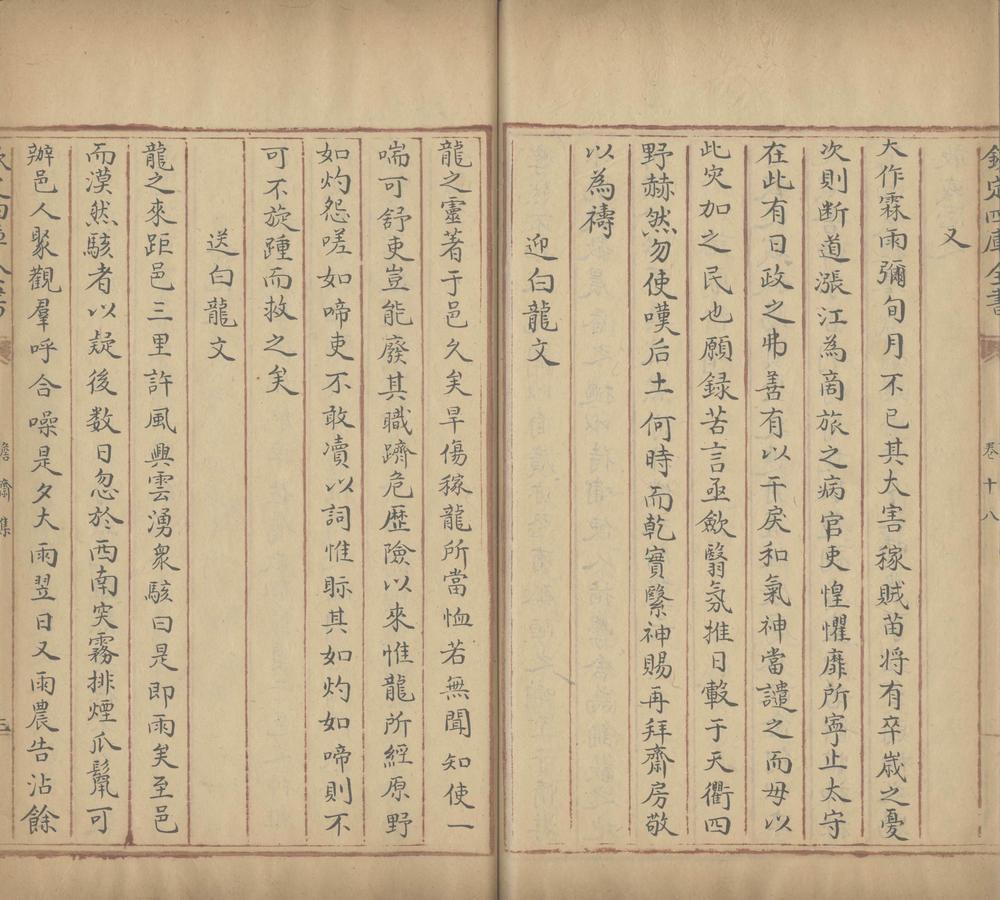 欽定四庫全書
卷十八
又
大作霖雨彌旬月不已其大害稼賊苗将有卒嵗之憂
次則断道漲江為啇旅之病官吏惶懼靡所寧止太守
在此有日政之弗善有以干戾和氣神當譴之而毋以
此灾加之民也願録苦言亟歛翳氛推日轂于天衢四
野赫然勿使嘆后土何時而乾實繄神賜再拜齋房敬
以為禱
迎白龍文
龍之靈著于邑久矣旱傷稼龍所當恤若無聞知使一
喘可舒吏豈能廢其職躋危歴險以來惟龍所經原野
如灼怨嗟如啼吏不敢凟以詞惟眎其如灼如啼則不
可不旋踵而救之矣
送白龍文
龍之來距邑三里許風興雲湧衆駭曰是即雨矣至邑
而漠然駭者以疑後数日忽於西南突霧排煙爪鬣可
辦邑人聚觀羣呼合噪是夕大雨翌日又雨農告沾餘
澹齋集
三